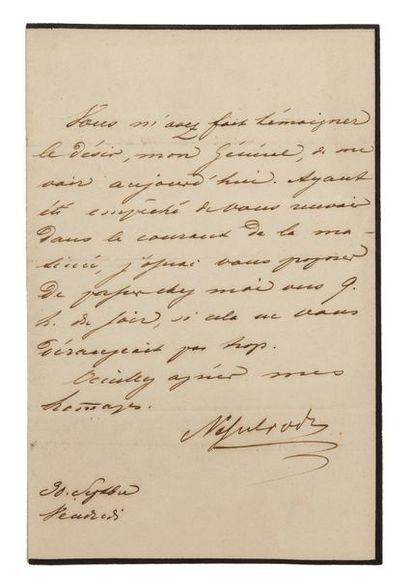 Vous m'avez fait témoigner
le désir, mon Général, de me
voir aujourd'hui. Ayant
été empêché de vous recevoir
dans le courant de la ma-
tinée, j'osais vous proposer
de passer chez moi vers 9.
h. du soir, si cela ne vous
dérangeait pas trop.
Veuillez agréer mes
hommages.
Nesselrode
30. Septbre
Vendredi